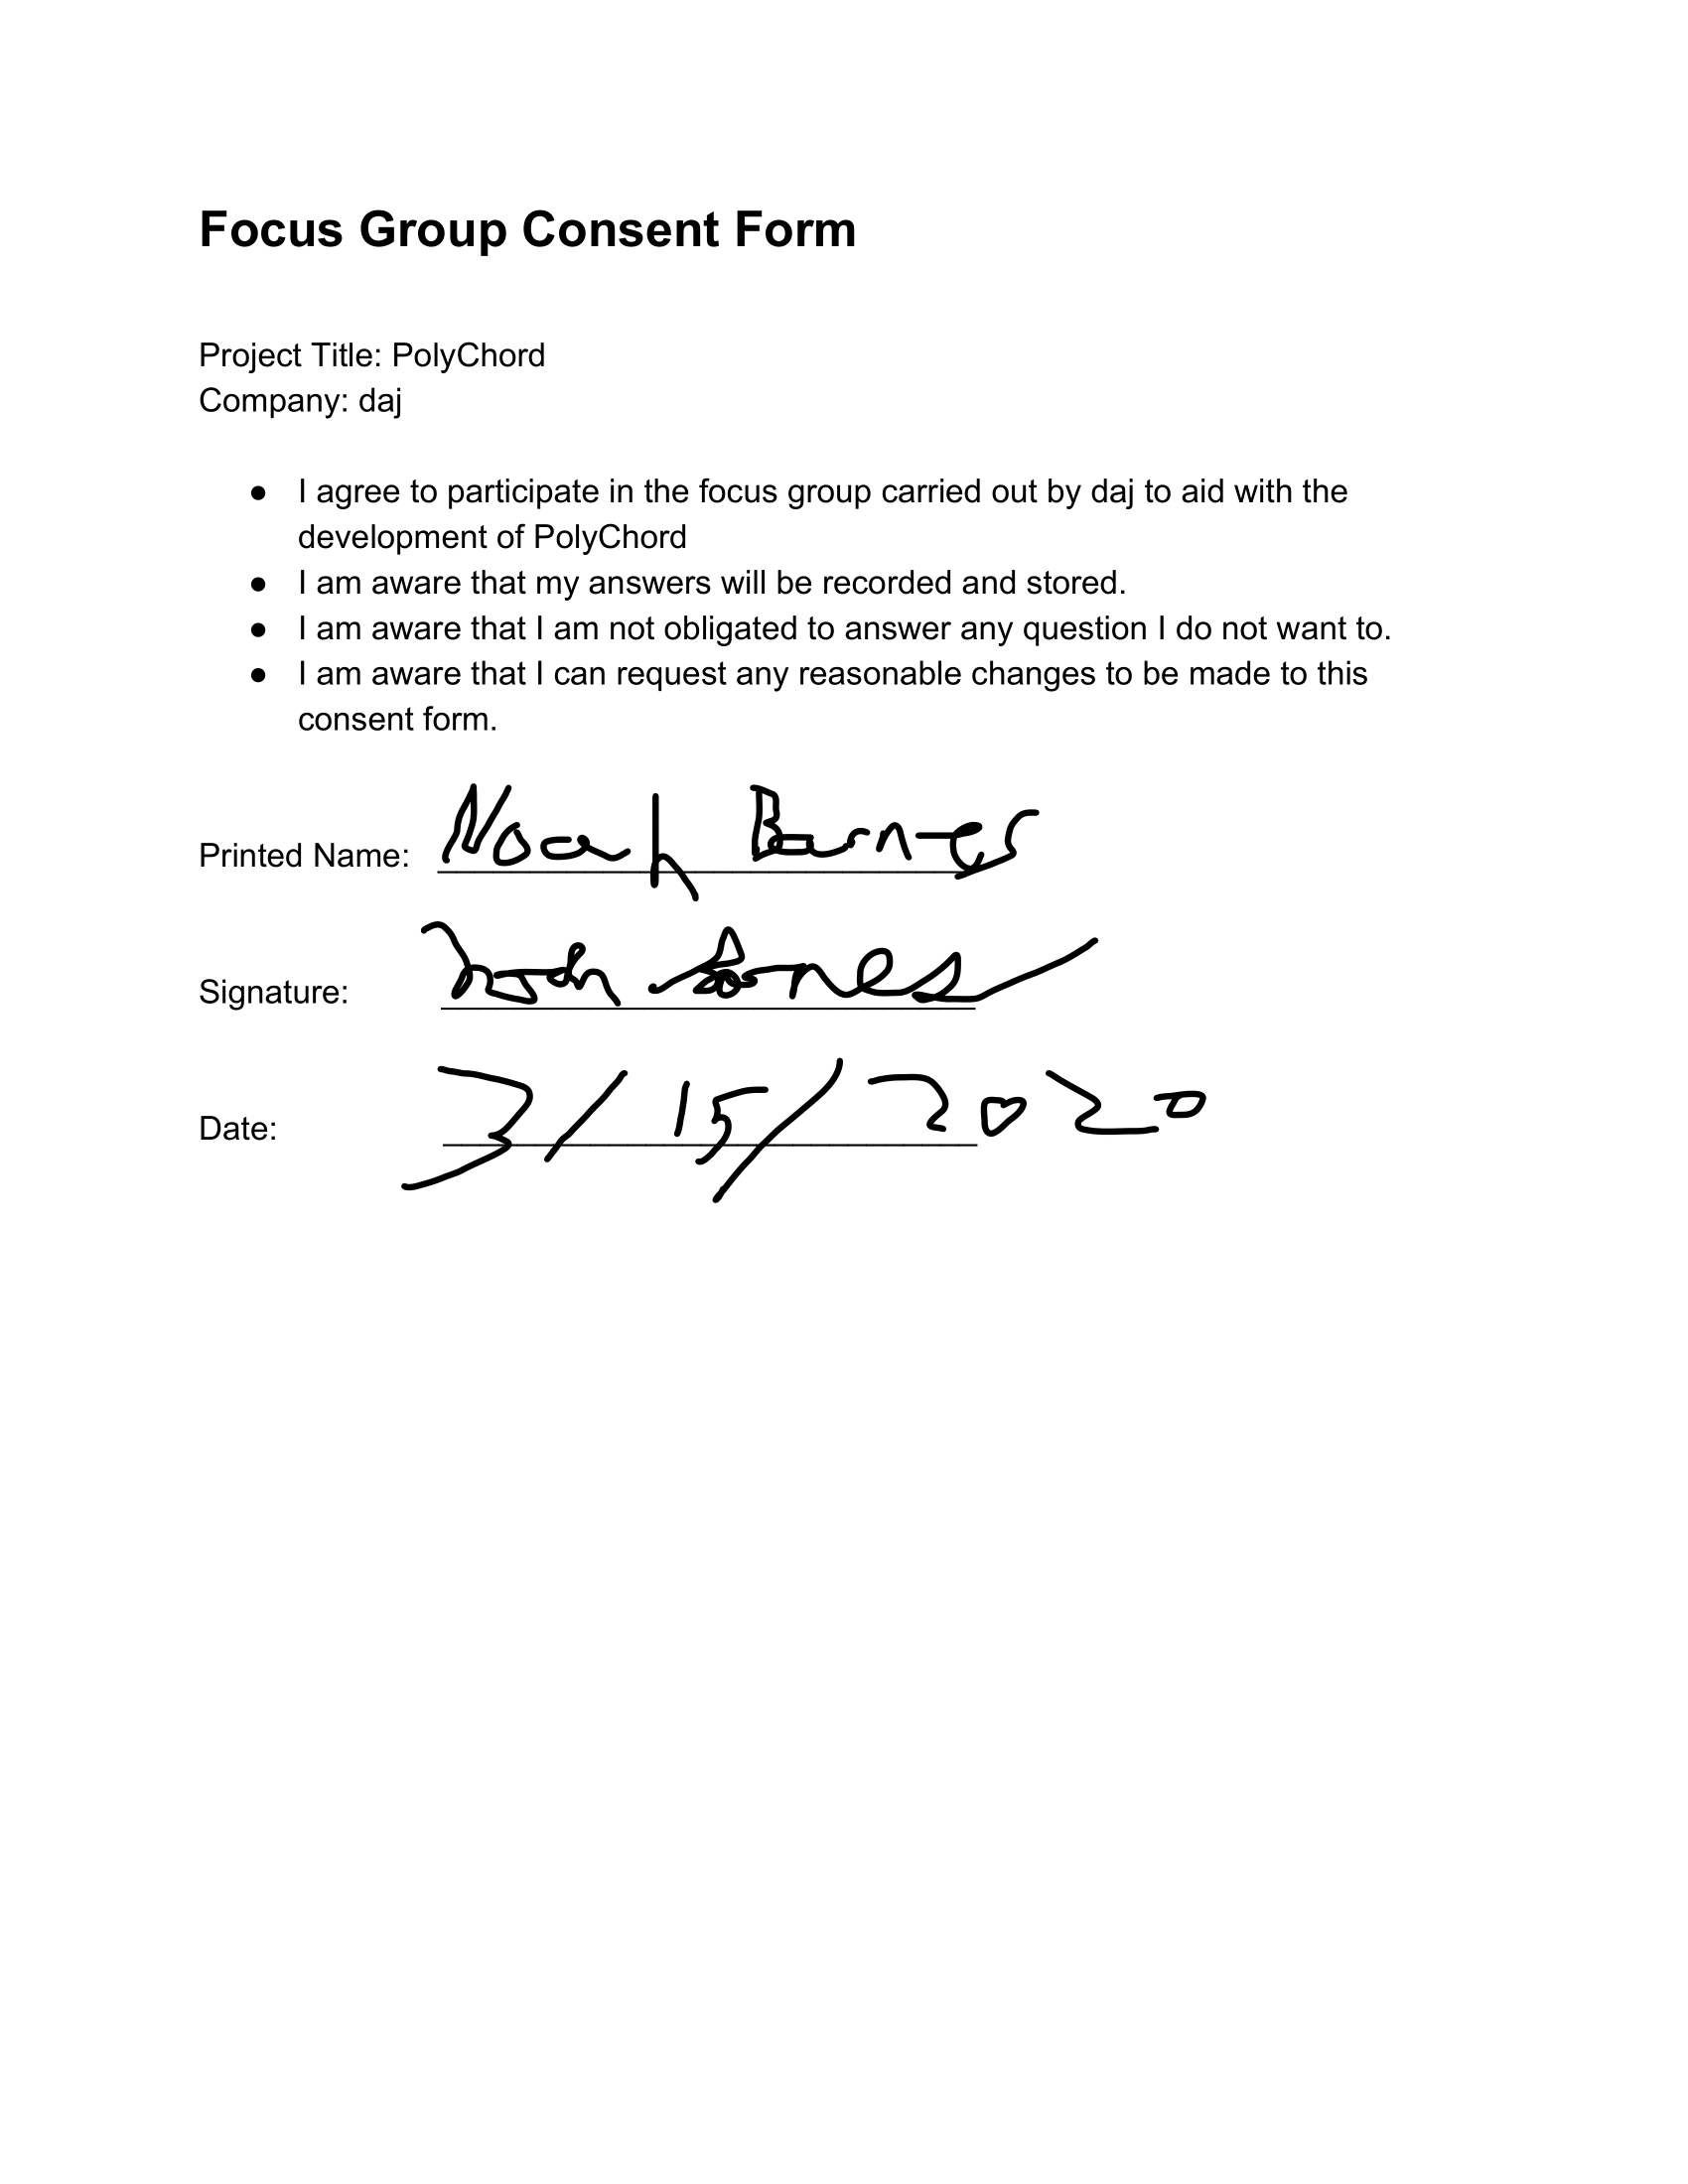 Focus Group Consent Form
Project Title: PolyChord
Company: daj
● I agree to participate in the focus group carried out by daj to aid with the
development of PolyChord
● I am aware that my answers will be recorded and stored.
● I am aware that I am not obligated to answer any question I do not want to.
● I am aware that I can request any reasonable changes to be made to this
consent form.
Printed Name: Noah Barnes
Signature: Noah Barnes
Date: 3/15/2020